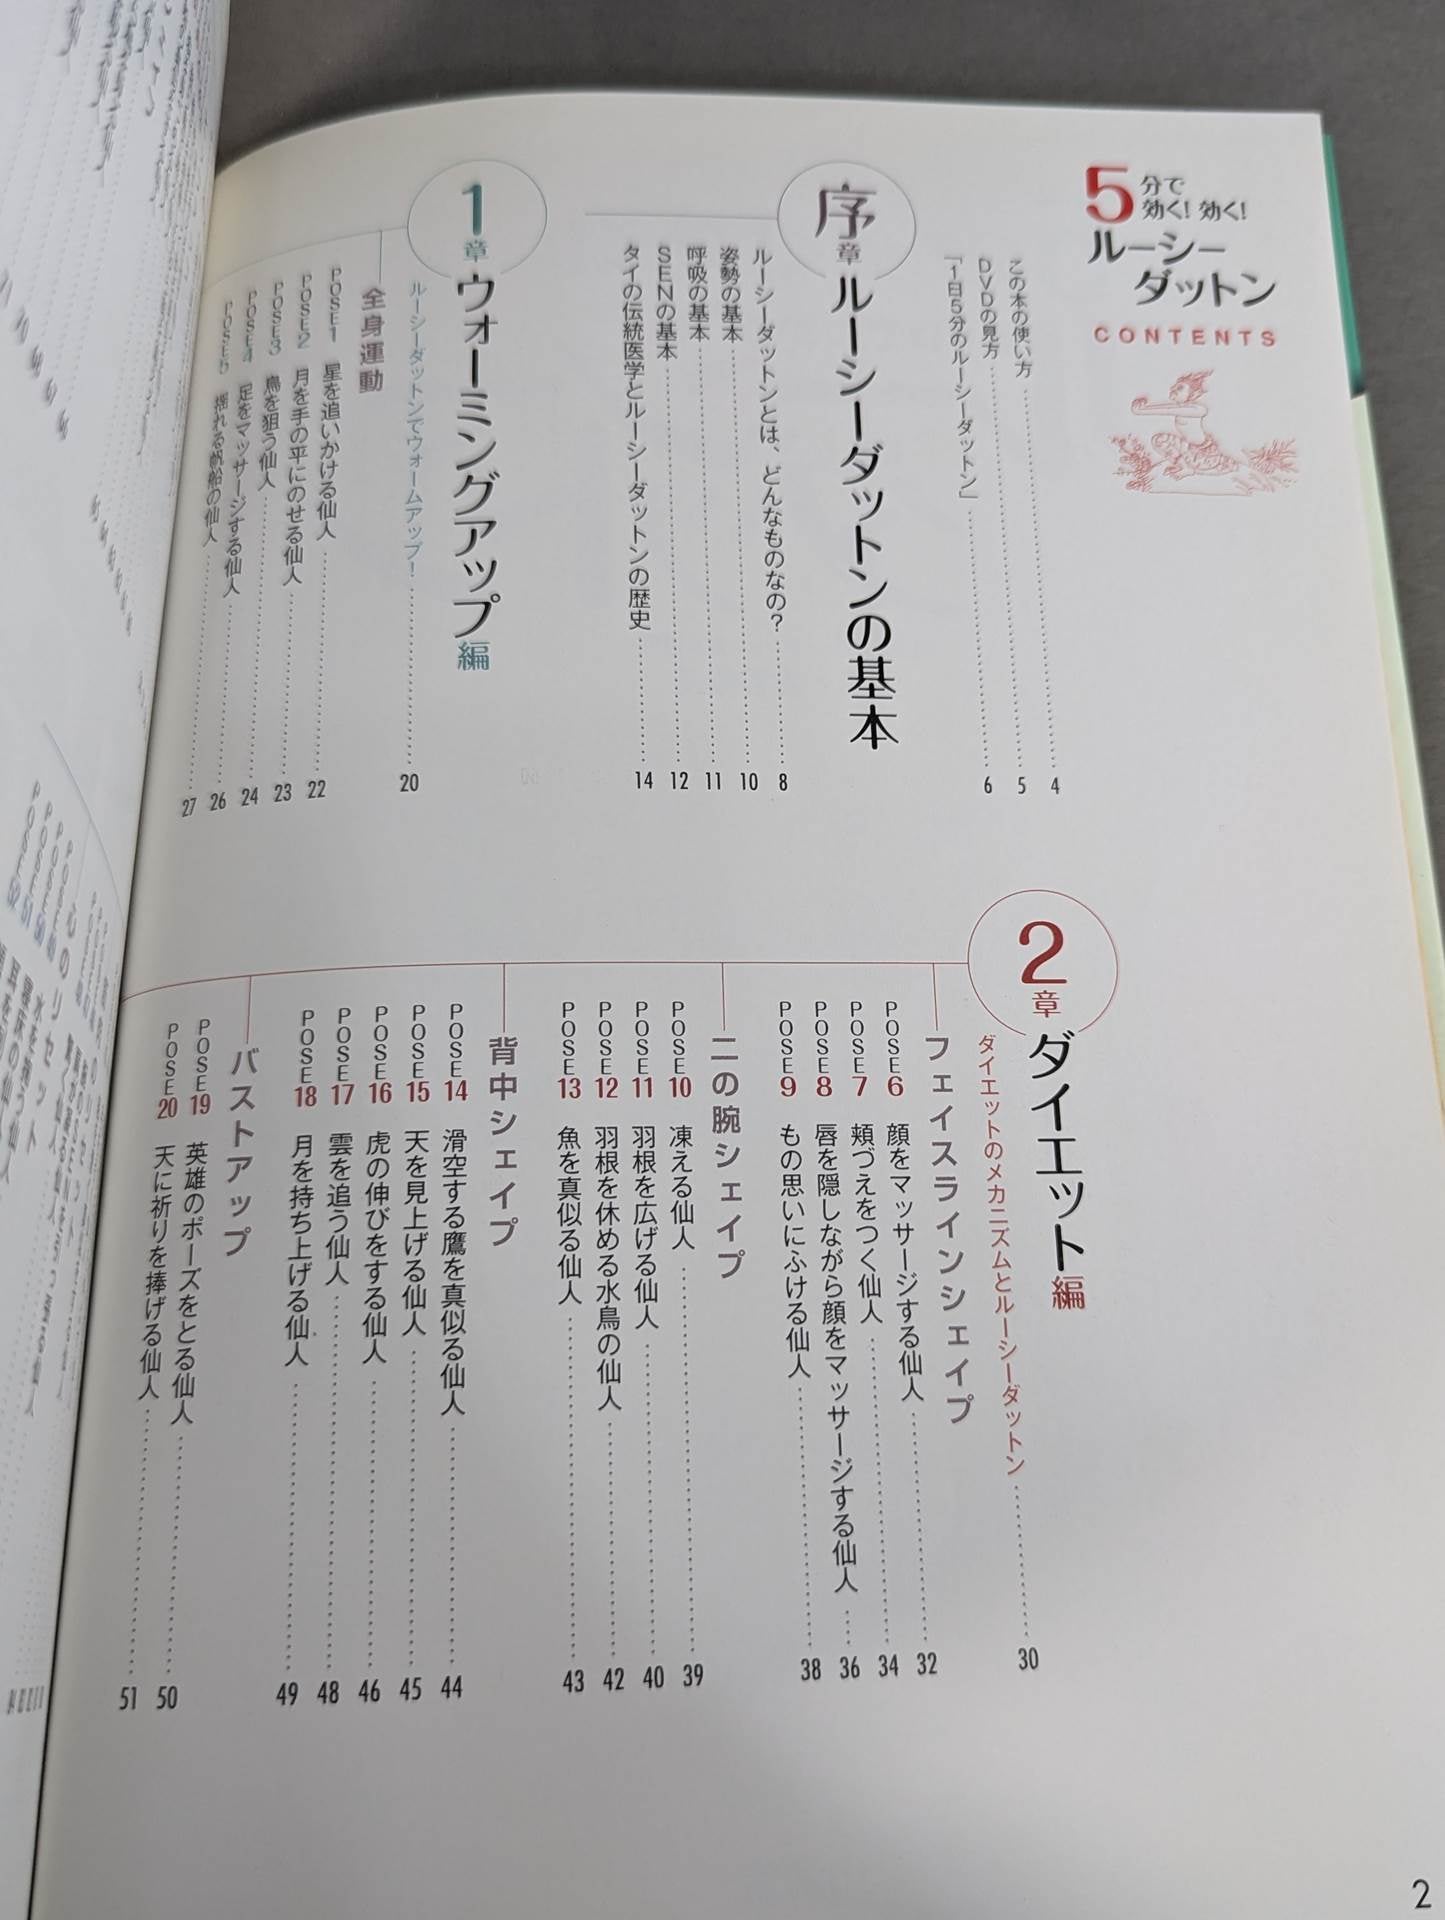 5分で
効く! 効く!
ルーシー
ダットン
CONTENTS
この本の使い方 4
DVDの見方 5
「1日5分のルーシーダットン」 6
序章 ルーシーダットンの基本
ルーシーダットンとは、どんなものなの? 8
姿勢の基本 10
呼吸の基本 11
SENの基本 12
タイの伝統医学とルーシーダットンの歴史 14
1章 ウォーミングアップ編
ルーシーダットンでウォームアップ! 20
全身運動
POSE1 星を追いかける仙人 22
POSE2 月を手の平にのせる仙人 23
POSE3 鳥を狙う仙人 24
POSE4 足をマッサージする仙人 26
POSE5 揺れる帆船の仙人 27
2章 ダイエット編
ダイエットのメカニズムとルーシーダットン 30
フェイスラインシェイプ
POSE6 顔をマッサージする仙人 32
POSE7 頬づえをつく仙人 34
POSE8 唇を隠しながら顔をマッサージする仙人 36
POSE9 もの思いにふける仙人 38
二の腕シェイプ
POSE10 凍える仙人 39
POSE11 羽根を広げる仙人 40
POSE12 羽根を休める水鳥の仙人 42
POSE13 魚を真似る仙人 43
背中シェイプ
POSE14 滑空する鷹を真似る仙人 44
POSE15 天を見上げる仙人 45
POSE16 虎の伸びをする仙人 46
POSE17 雲を追う仙人 48
POSE18 月を持ち上げる仙人 49
バストアップ
POSE19 英雄のポーズをとる仙人 50
POSE20 天に祈りを捧げる仙人 51
2